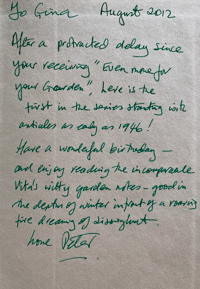 To Gina August 2012
After a protracted delay since
your receiving "Even more for
your Gaarden", here is the
first in the series starting with
articles as early as 1946!
Have a wonderful birthday –
and enjoy reading the incomparable
Vita's witty garden notes – good in
the depths of winter in front of a roaring
fire dreaming of Sissinghurst.
love Peter